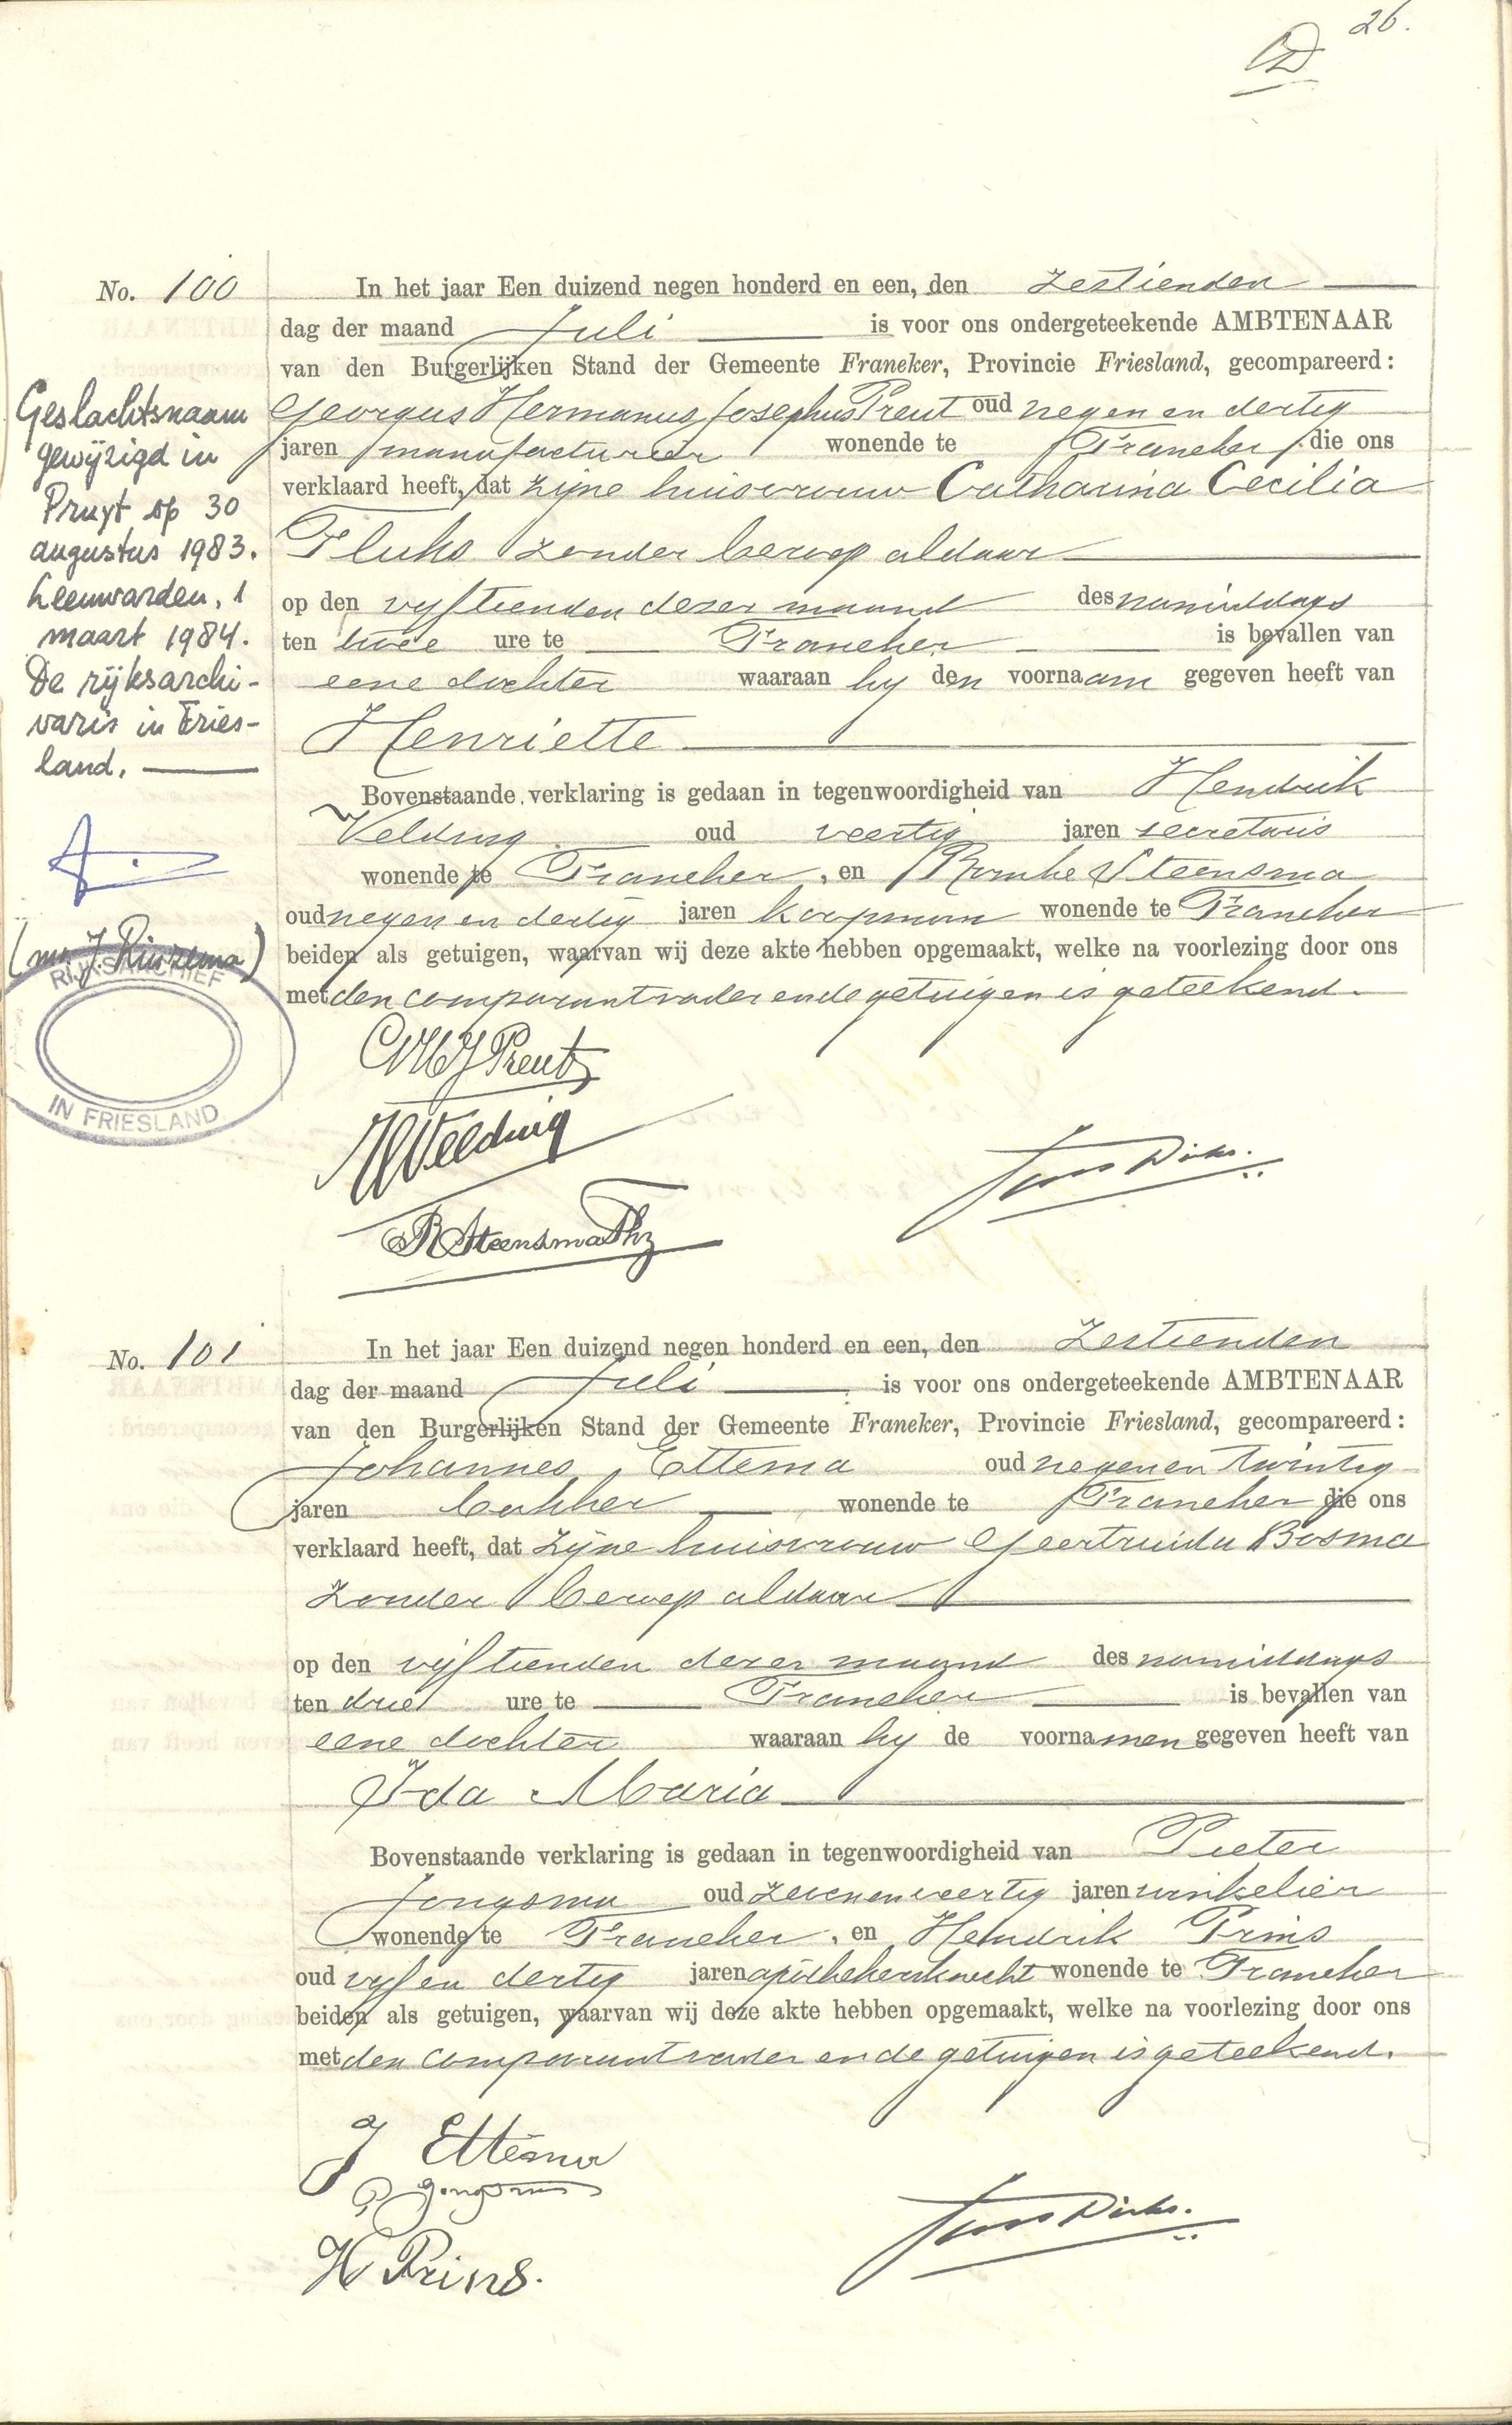 26.
No. 100
In het jaar Een duizend negen honderd en een, den zestienden
dag der maand Juli is voor ons ondergeteekende AMBTENAAR
van den Burgerlijken Stand der Gemeente Franeker, Provincie Friesland, gecompareerd:
Georgus Hermanus Josephus Preut oud negen en dertig
jaren manufacturier wonende te Franeker, die ons
verklaard heeft, dat zijne huisvrouw Catharina Cecilia
Fluks zonder beroep aldaar
op den vijftienden dezer maand des namiddags
ten twee ure te Franeker is bevallen van
eene dochter waaraan hij den voornaam gegeven heeft van
Henriette
Bovenstaande verklaring is gedaan in tegenwoordigheid van Hendrik
Velding oud veertig jaren secretaris
wonende te Franeker, en Romke Steensma
oud negen en dertig jaren koopman wonende te Franeker
beiden als getuigen, waarvan wij deze akte hebben opgemaakt, welke na voorlezing door ons
met den comparant vader en de getuigen is geteekend.
Geslachtsnaam
gewijzigd in
Pruyt op 30
augustus 1983.
Leeuwarden, 1
maart 1984.
De rijksarchi-
varis in Fries-
land.
(mr. J. Rinzema)
RIJKSARCHIEF
IN FRIESLAND
GHJ Preut
H Velding
R Steensma Thz
Dirks.
No. 101
In het jaar Een duizend negen honderd en een, den zestienden
dag der maand Juli is voor ons ondergeteekende AMBTENAAR
van den Burgerlijken Stand der Gemeente Franeker, Provincie Friesland, gecompareerd:
Johannes Ettema oud negen en twintig
jaren bakker wonende te Franeker die ons
verklaard heeft, dat zijne huisvrouw Geertruida Bosma
zonder beroep aldaar
op den vijftienden dezer maand des namiddags
ten drie ure te Franeker is bevallen van
eene dochter waaraan hij de voornamen gegeven heeft van
Ida Maria
Bovenstaande verklaring is gedaan in tegenwoordigheid van Pieter
Jongsma oud zeven en veertig jaren winkelier
wonende te Franeker, en Hendrik Prins
oud vijf en dertig jaren apothekersknecht wonende te Franeker
beiden als getuigen, waarvan wij deze akte hebben opgemaakt, welke na voorlezing door ons
met den comparant vader en de getuigen is geteekend.
J Ettema
P Jongsma
H Prins.
Dirks.